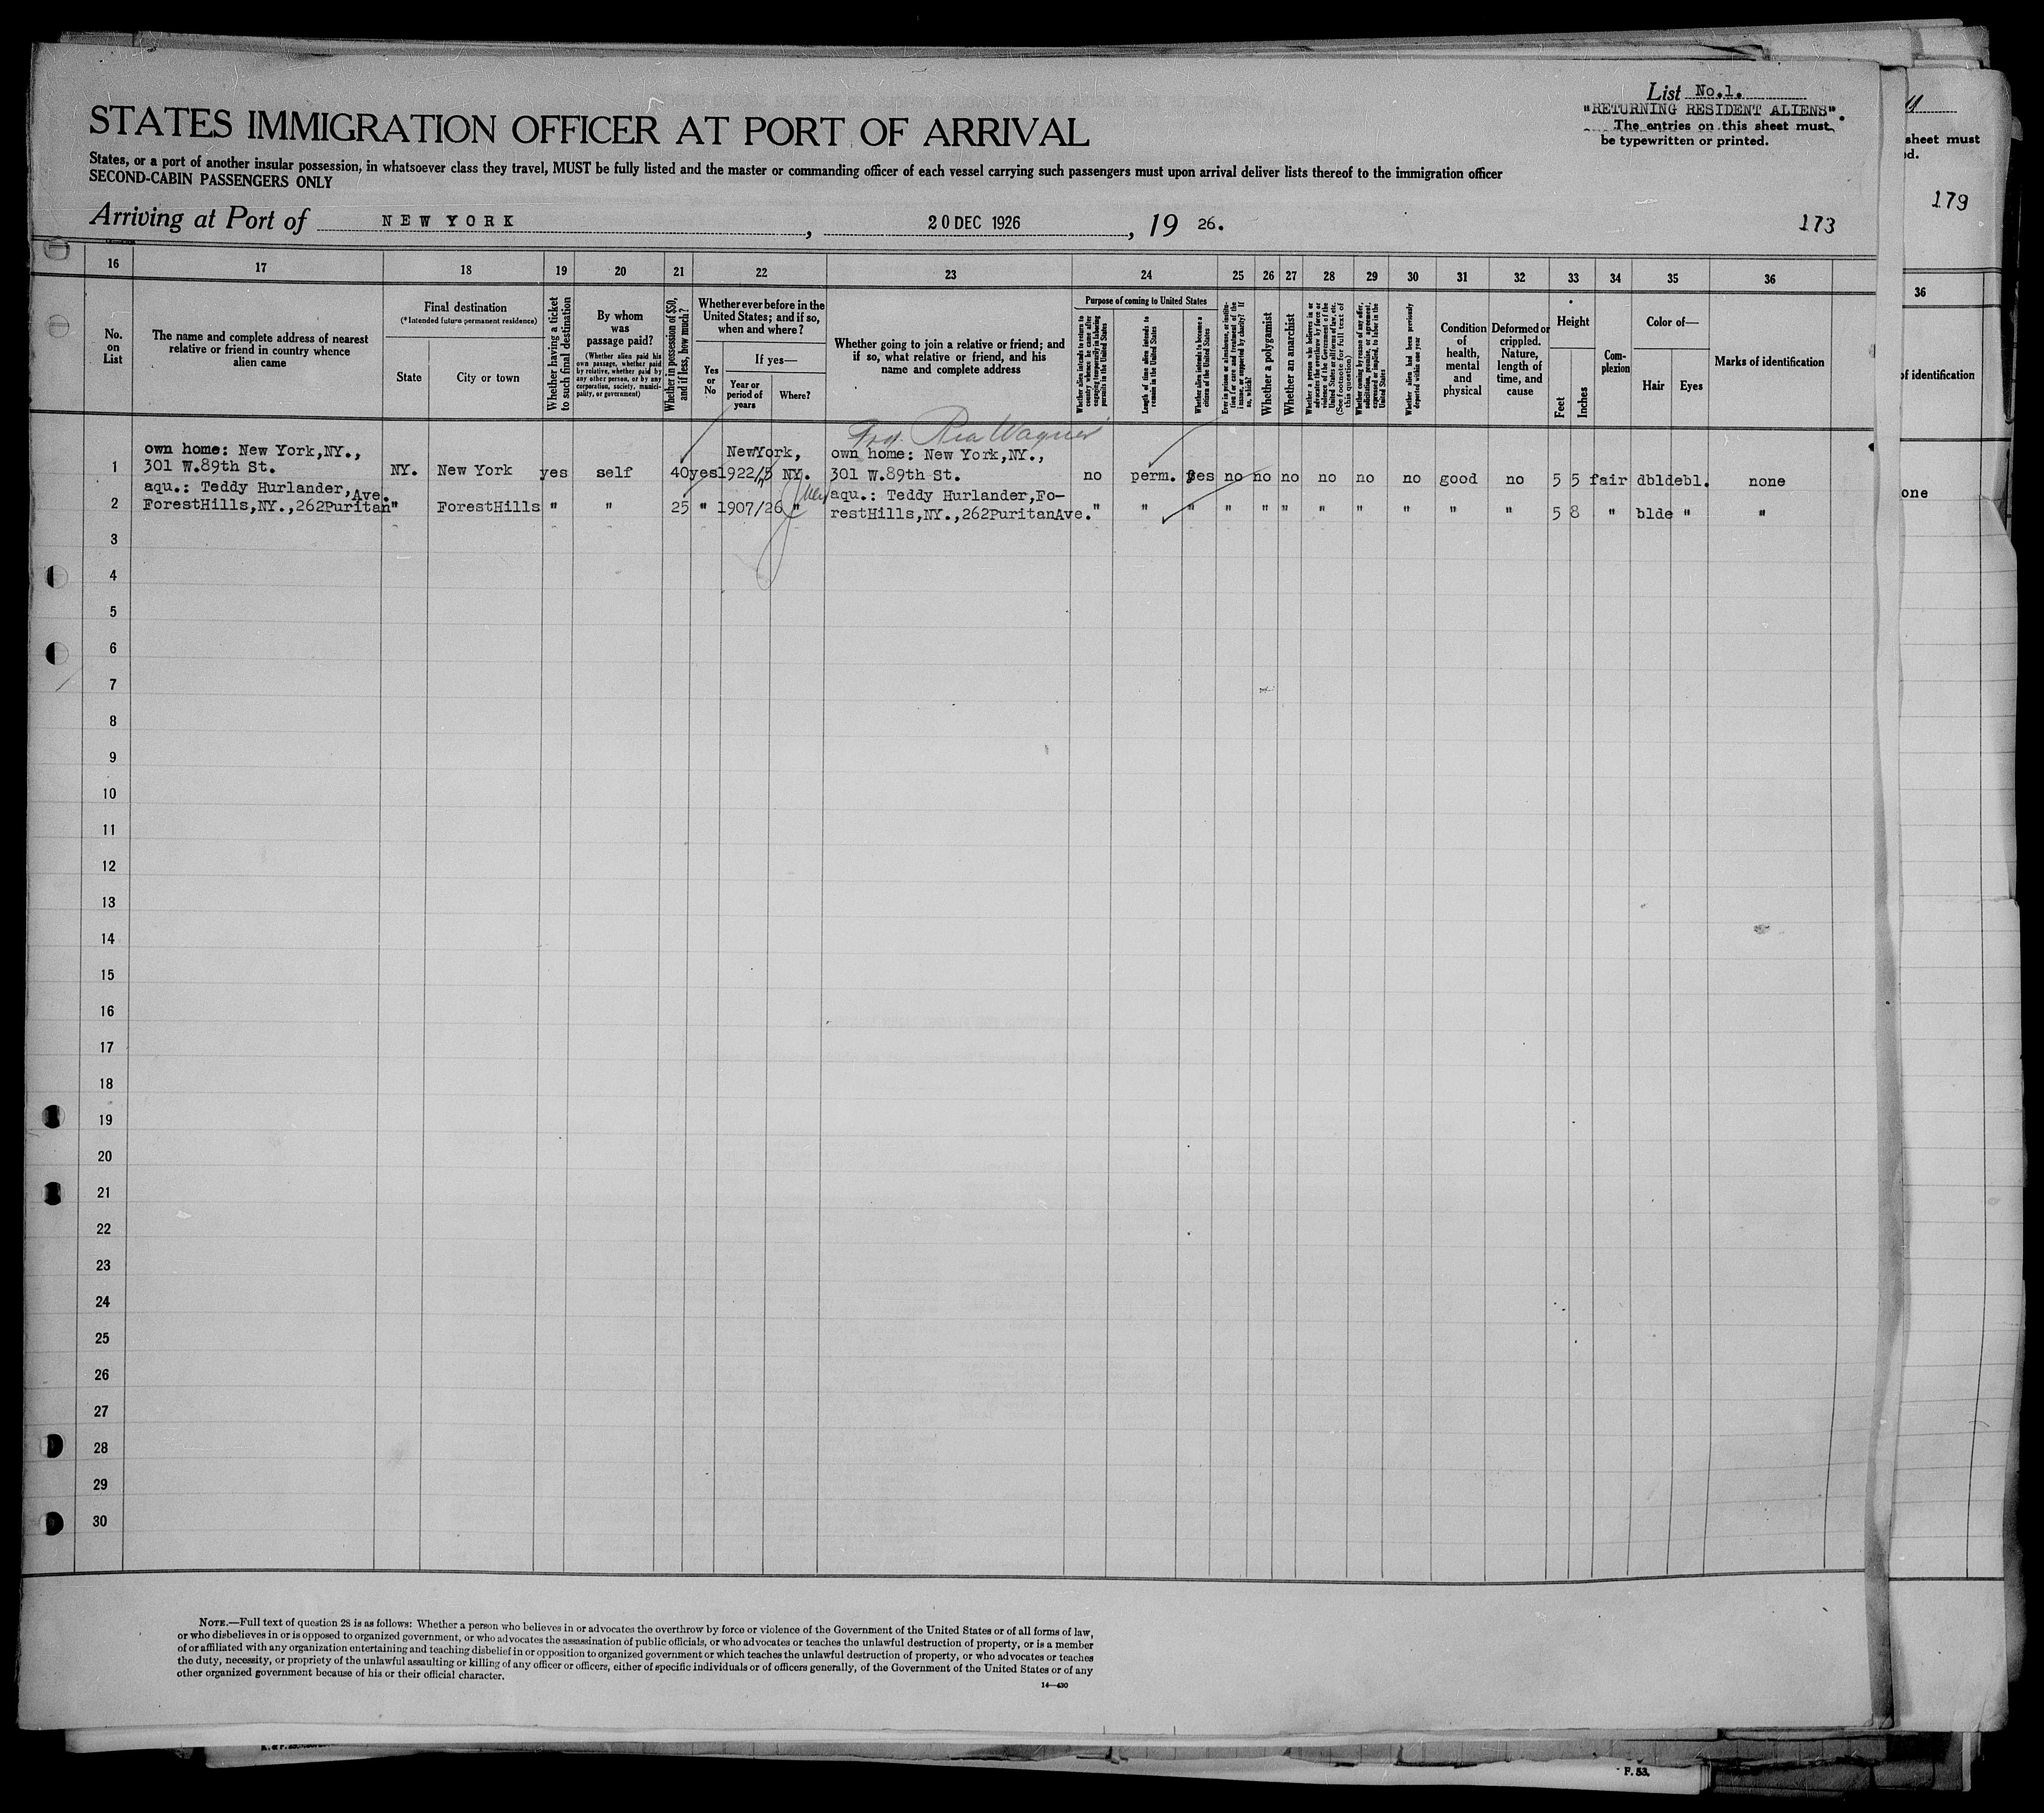 List No.1.
"RETURNING RESIDENT ALIENS".
The entries on this sheet must
be typewritten or printed.
STATES IMMIGRATION OFFICER AT PORT OF ARRIVAL
States, or a port of another insular possession, in whatsoever class they travel, MUST be fully listed and the master or commanding officer of each vessel carrying such passengers must upon arrival deliver lists thereof to the immigration officer
SECOND-CABIN PASSENGERS ONLY
Arriving at Port of NEW YORK, 20 DEC 1926, 19 26.
173
16 17 18 19 20 21 22 23 24 25 26 27 28 29 30 31 32 33 34 35 36
No. on List
The name and complete address of nearest
relative or friend in country whence
alien came
Final destination
(*Intended future permanent residence)
State
City or town
Whether having a ticket
to such final destination
By whom
was
passage paid?
(Whether alien paid his
own passage, whether paid
by relative, whether paid by
any other person, or by any
corporation, society, munici-
pality, or government)
Whether in possession of $50,
and if less, how much?
Whether ever before in the
United States; and if so,
when and where?
Yes
or
No
If yes—
Year or
period of
years
Where?
Whether going to join a relative or friend; and
if so, what relative or friend, and his
name and complete address
Purpose of coming to United States
Whether alien intends to return to
country whence he came after
engaging temporarily in laboring
pursuits in the United States
Length of time alien intends to
remain in the United States
Whether alien intends to become a
citizen of the United States
Ever in prison or almshouse, or institu-
tion for care and treatment of the
insane, or supported by charity? If
so, which?
Whether a polygamist
Whether an anarchist
Whether a person who believes in or
advocates the overthrow by force or
violence of the Government of the
United States or all forms of law, etc.
(See footnote for full text of
this question)
Whether coming by reason of any offer,
solicitation, promise, or agreement,
expressed or implied, to labor in the
United States
Whether alien had been previously
deported within one year
Condition
of
health,
mental
and
physical
Deformed or
crippled.
Nature,
length of
time, and
cause
Height
Feet
Inches
Com-
plexion
Color of—
Hair
Eyes
Marks of identification
Ria Wagner
1 own home: New York,NY., 301 W.89th St. NY. New York yes self 40 yes 1922/5 NewYork, NY. own home: New York,NY., 301 W.89th St. no perm. yes no no no no no no good no 5 5 fair dbld ebl. none
2 aqu.: Teddy Hurlander, ForestHills,NY.,262Puritan Ave. " ForestHills " " 25 " 1907/26 " aqu.: Teddy Hurlander,Fo-
restHills,NY.,262PuritanAve. " " " " " " " " " " " 5 8 " blde " "
3
4
5
6
7
8
9
10
11
12
13
14
15
16
17
18
19
20
21
22
23
24
25
26
27
28
29
30
NOTE.—Full text of question 28 is as follows: Whether a person who believes in or advocates the overthrow by force or violence of the Government of the United States or of all forms of law,
or who disbelieves in or is opposed to organized government, or who advocates the assassination of public officials, or who advocates or teaches the unlawful destruction of property, or is a member
of or affiliated with any organization entertaining and teaching disbelief in or opposition to organized government or which teaches the unlawful destruction of property, or who advocates or teaches
the duty, necessity, or propriety of the unlawful assaulting or killing of any officer or officers, either of specific individuals or of officers generally, of the Government of the United States or of any
other organized government because of his or their official character.
14—430
sheet must
179
36
of identification
F. 53.